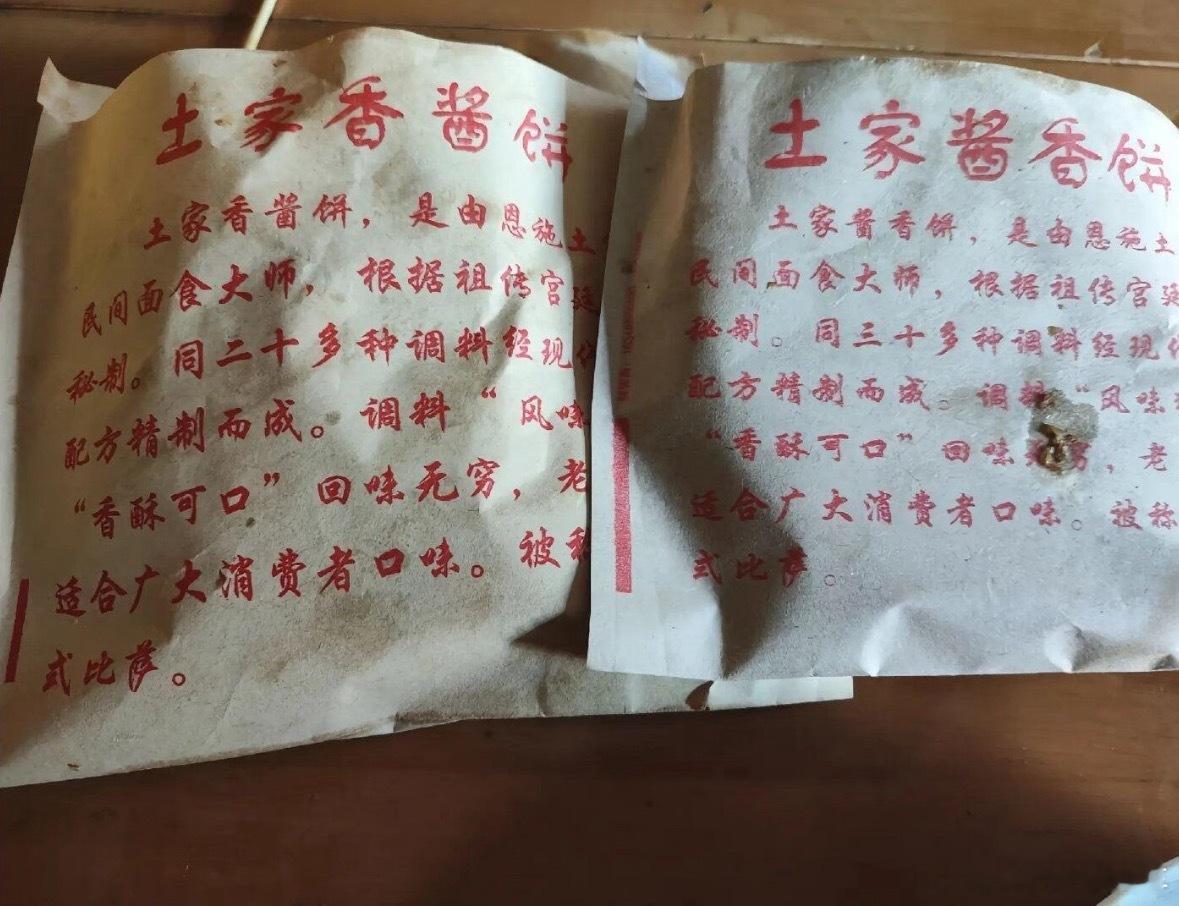 土家香酱饼
土家香酱饼，是由恩施土
民间面食大师，根据祖传宫廷
秘制。同二十多种调料经现代
配方精制而成。调料“风味
“香酥可口”回味无穷，老
适合广大消费者口味。被称
式比萨。
土家酱香饼
土家酱香饼，是由恩施土
民间面食大师，根据祖传宫廷
秘制。同三十多种调料经现代
配方精制而成。调料“风味
“香酥可口”回味无穷，老
适合广大消费者口味。被称
式比萨。